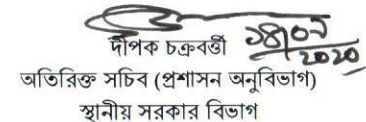 দীপক চক্রবর্ত্তী
অতিরিক্ত সচিব (প্রশাসন অনুবিভাগ)
স্থানীয় সরকার বিভাগ